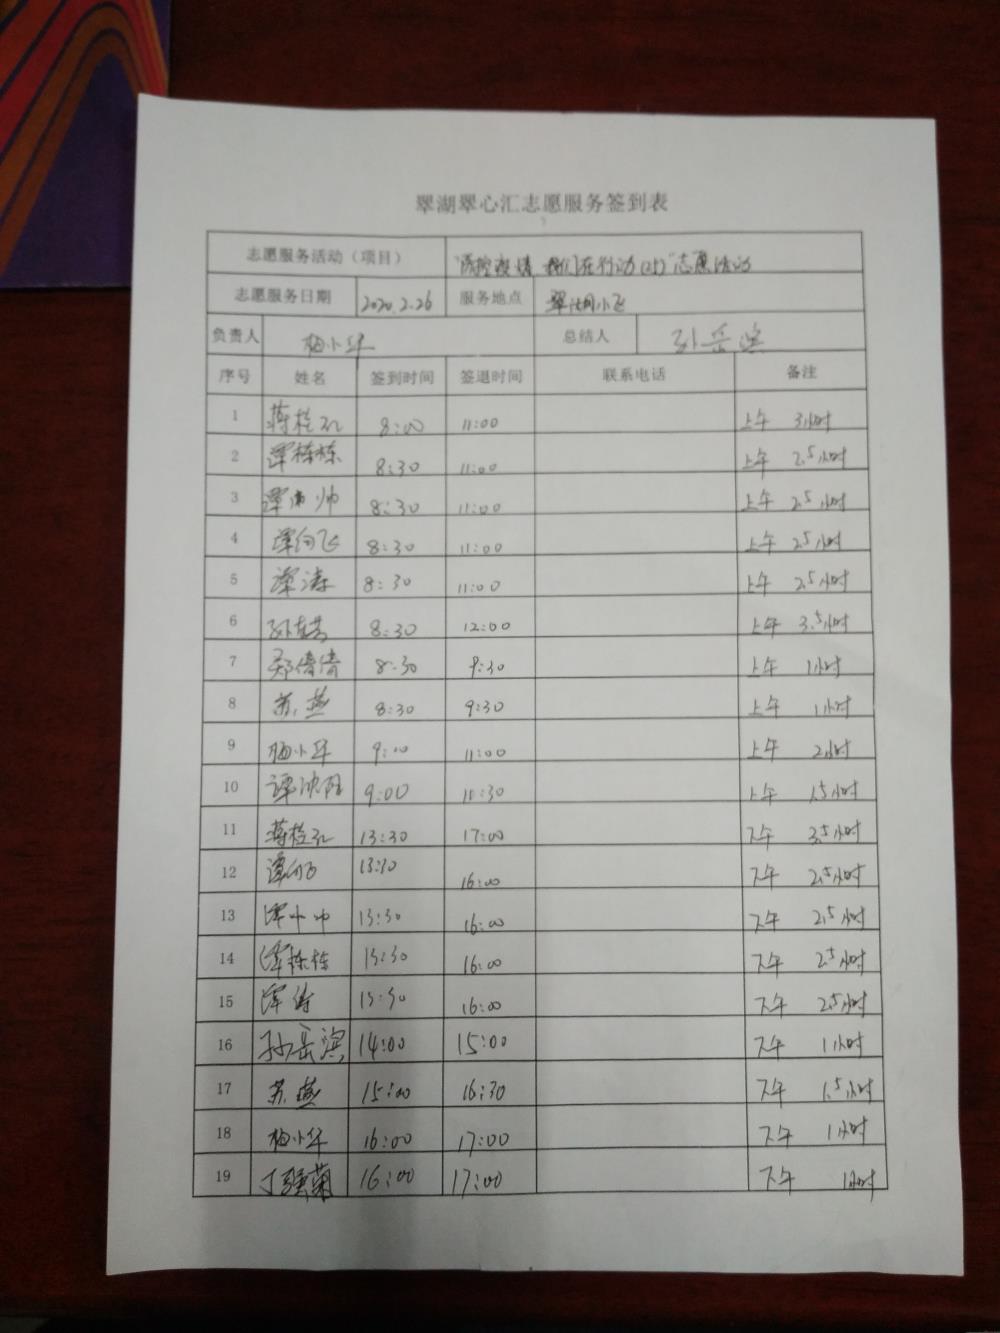 翠湖翠心汇志愿服务签到表
志愿服务活动（项目） "防控疫情 我们在行动(25)"志愿活动
志愿服务日期 2020.2.26 服务地点 翠湖小区
负责人 梅小华 总结人 孙岳滨
序号 姓名 签到时间 签退时间 联系电话 备注
1 蒋桂礼 8:00 11:00 上午 3小时
2 谭栋栋 8:30 11:00 上午 2.5小时
3 谭 帅 8:30 11:00 上午 2.5小时
4 谭向飞 8:30 11:00 上午 2.5小时
5 谭涛 8:30 11:00 上午 2.5小时
6 8:30 12:00 上午 3.5小时
7 郑倩倩 8:30 9:30 上午 1小时
8 苏燕 8:30 9:30 上午 1小时
9 梅小华 9:00 11:00 上午 2小时
10 谭沈阳 9:00 11:30 上午 1.5小时
11 蒋桂礼 13:30 17:00 下午 3.5小时
12 谭向飞 13:30 16:00 下午 2.5小时
13 谭 帅 13:30 16:00 下午 2.5小时
14 谭栋栋 13:30 16:00 下午 2.5小时
15 谭涛 13:30 16:00 下午 2.5小时
16 孙岳滨 14:00 15:00 下午 1小时
17 苏燕 15:00 16:30 下午 1.5小时
18 梅小华 16:00 17:00 下午 1小时
19 丁 菊 16:00 17:00 下午 1小时